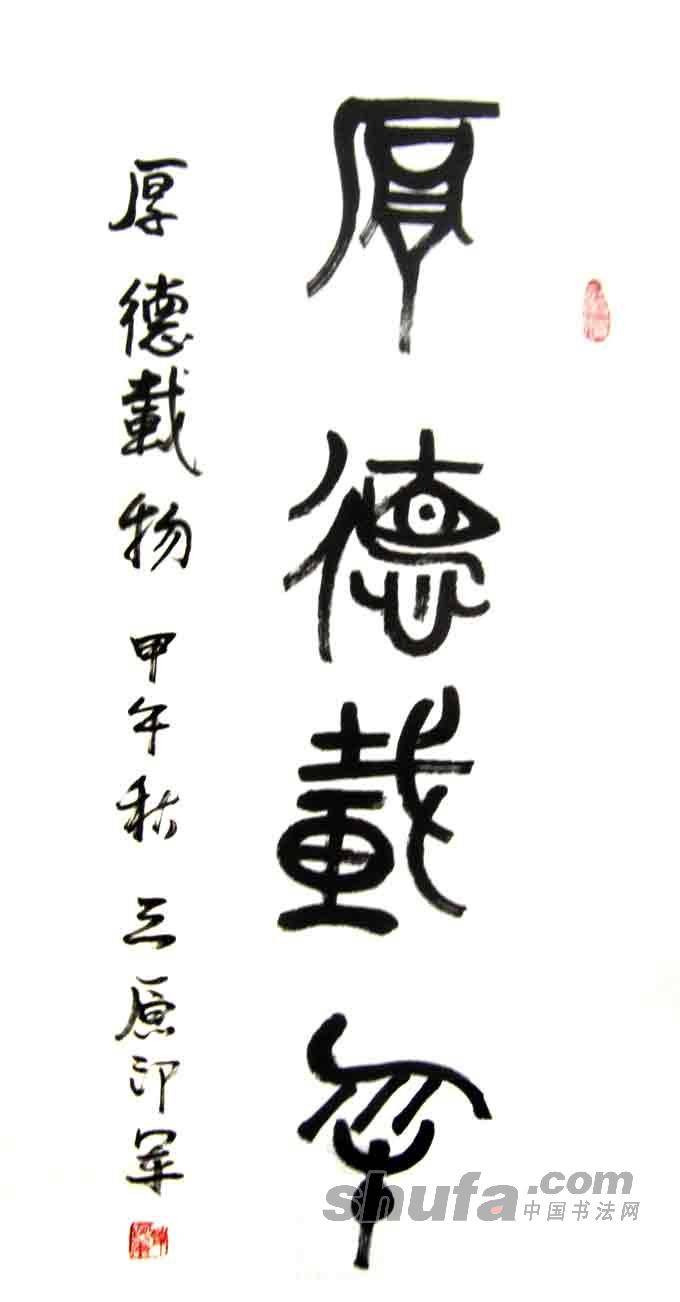 厚德載物
厚德載物 甲午秋 三原印军
shufa.com
中国书法网